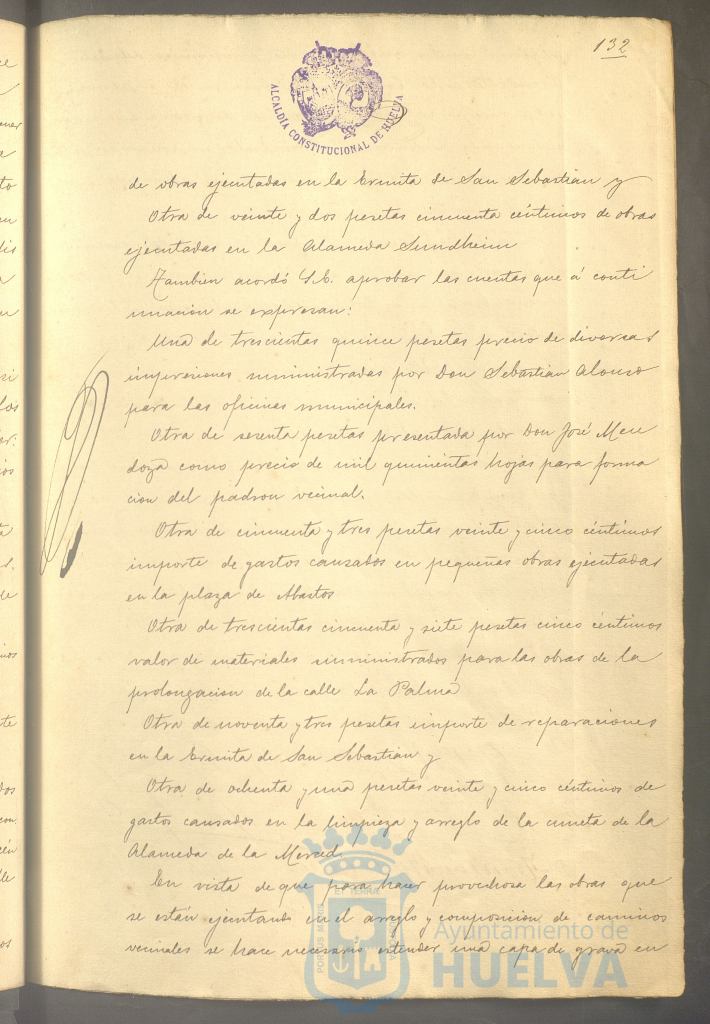 132
ALCALDÍA CONSTITUCIONAL DE HUELVA
de obras ejecutadas en la Ermita de San Sebastian y
Otra de veinte y dos pesetas cincuenta céntimos de obras
ejecutadas en la Alameda Sundheim
Tambien acordó S.E. aprobar las cuentas que á conti
nuacion se expresan:
Una de trescientas quince pesetas precio de diversas
impresiones suministradas por Don Sebastian Alonso
para las oficinas municipales.
Otra de sesenta pesetas presentada por Don José Men
doza como precio de mil quinientas hojas para forma
cion del padron vecinal.
Otra de cincuenta y tres pesetas veinte y cinco céntimos
importe de gastos causados en pequeñas obras ejecutadas
en la plaza de Abastos
Otra de trescientas cincuenta y siete pesetas cinco céntimos
valor de materiales suministrados para las obras de la
prolongacion de la calle La Palma
Otra de noventa y tres pesetas importe de reparaciones
en la Ermita de San Sebastian y
Otra de ochenta y una pesetas veinte y cinco céntimos de
gastos causados en la limpieza y arreglo de la cuneta de la
Alameda de la Merced.
En vista de que para hacer provechosa las obras que
se están ejecutando en el arreglo y composicion de caminos
vecinales se hace necesario estender una capa de grava en
Ayuntamiento de
HUELVA